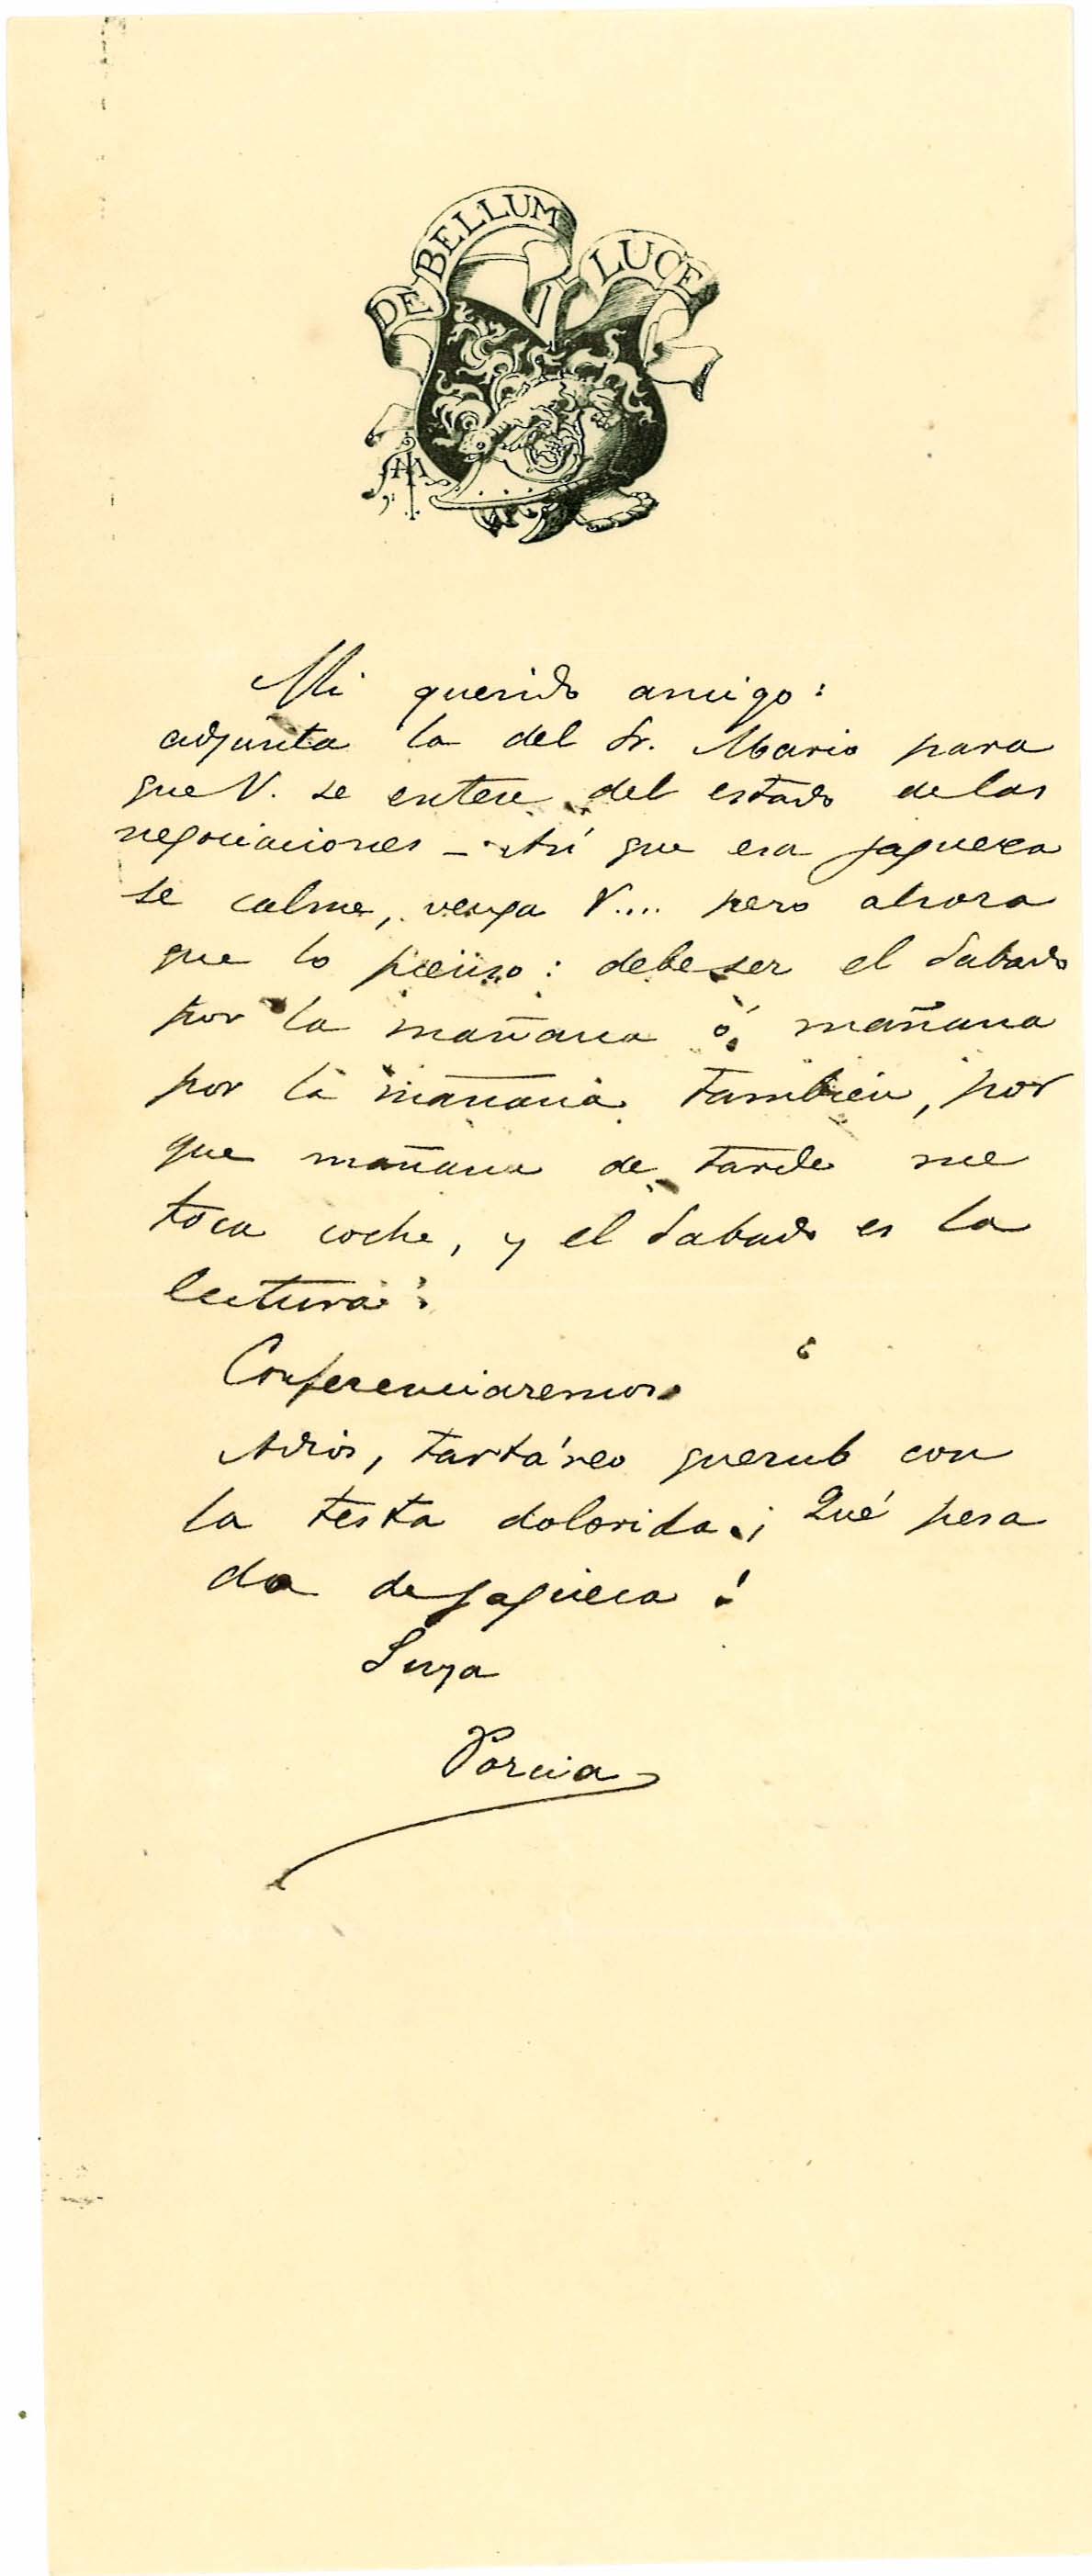 DE BELLUM LUCE
Mi querido amigo:
adjunta la del Sr. Mario para
que V. se entere del estado de las
negociaciones — Así que esa jaqueca
se calme, venga V.... pero ahora
que lo pienso: debe ser el Sabado
por la mañana ó mañana
por la mañana tambien, por
que mañana de tarde me
toca coche, y el Sabado es la
lectura:
Conferenciaremos
Adios, tartáreo querub con
la testa dolorida. ¡Qué pesa
da de jaqueca!
Suya
Porcia